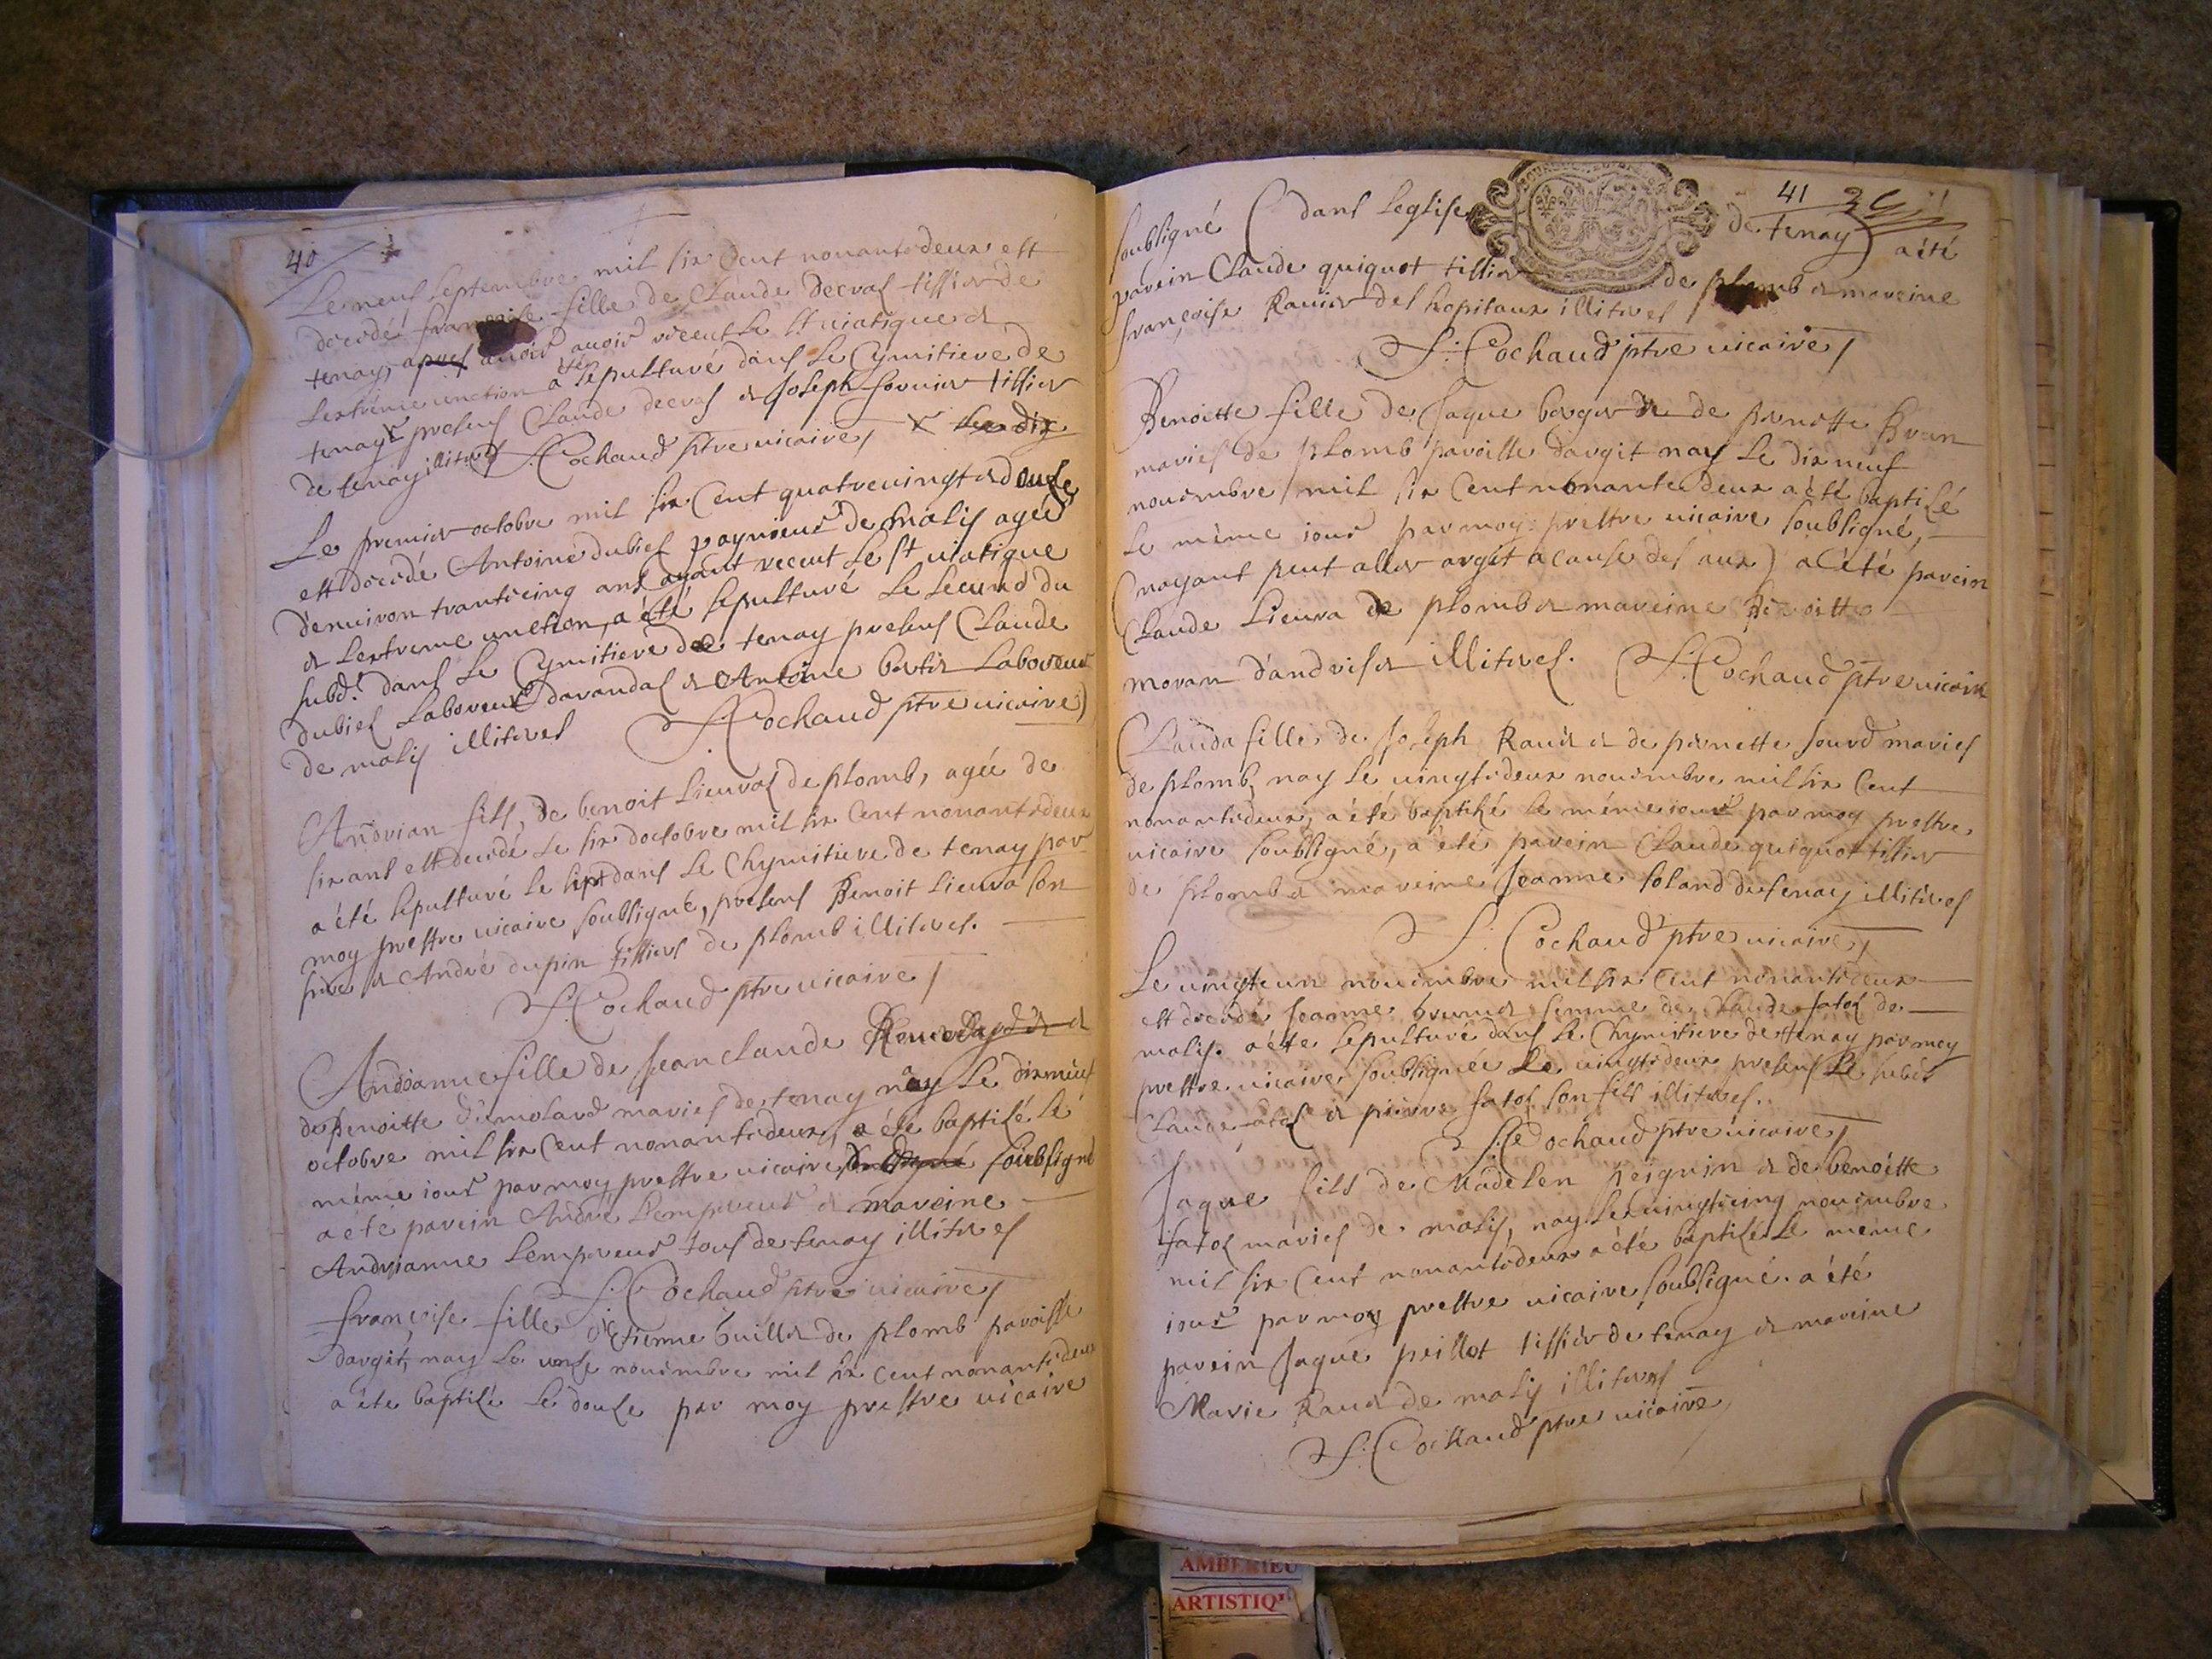 40
Le neuf septembre mil six cent nonantedeux est
decedé françoise fille de Claude decras tissier de
tenay, apres avoir avoir receut le st viatique et
lextréme unction a été sepulturé dans le Cymitiere de
tenay presens Claude decras et Joseph fornier tissier
de tenay illiteres F: Cochaud ptre vicaire X le dix
Le premier octobre mil six Cent quatrevingtetdouze
est decedé Antoine dubief de malis agée
denuiron trantecinq ans ayant receut le st viatique
et lextreme unction, a été sepulturé le second du
subd.t dans le Cymitiere de tenay presens Claude
dubief laboreur darandas et Antoine bertet laboreur
de malis illiteres F: Cochaud ptre vicaire
Andrian fils, de benoit lieuraz de plomb, agée de
six ans est decedé le six doctobre mil six Cent nonantedeux
a été sepulturé le sept dans le Chymitiere de tenay par
moy prestre vicaire soubsigné, presens Benoit lieura son
frere et André dupin tissiers de plomb illiteres.
F: Cochaud ptre vicaire
Andrianne fille de Jean claude et
de benoitte dumolard mariés de tenay nay le dixneuf
octobre mil six Cent nonantedeux, a été baptisé le
méme iour par moy prestre vicaire soubsigné
a été parein André Lempereur et mareine
Andrianne Lempereur tous de tenay illiteres
F: Cochaud ptre vicaire
françoise fille détienne de plomb paroisse
dargit, nay le unze nouembre mil six cent nonantedeux
a été baptisé le douze par moy prestre vicaire
41
soubsigné (dans leglise de tenay) a été
parein Claude quiquot tissier de plomb et mareine
françoise Rauier des hopitaux illiteres
F: Cochaud ptre vicaire
Benoitte fille de Jaque berger et de pernette Brun
mariés de plomb paroisse dargit nay le dixneuf
nouembre mil six Cent nonantedeux a été baptisé
le méme iour par moy prestre vicaire soubsigné,
(nayant peut aller argit a cause des aux) a été parein
Claude Lieura de plomb et mareine Benoitte
moran illiteres. F: Cochaud ptre vicaire
Clauda fille de Joseph Rauier et de pernette sourd mariés
de plomb, nay le vingtedeux nouembre mil six Cent
nonantedeux, a été baptisé le méme iour par moy prestre
vicaire soubsigné, a été parein Claude quiquot tissier
de plomb et mareine Jeanne soland de tenay illiteres
F: Cochaud ptre vicaire
Le vingteun nouembre mil six Cent nonantedeux
est decedé Jeanne brunet femme de Claude fatoz de
malis. a été sepulturé dans le Chymitiere de tenay par moy
prestre vicaire soubsignée le vingtedeux presens le subdt
Claude fatoz et pierre fatoz son fils illiteres.
F: Cochaud ptre vicaire
Jaque fils de Madelen peignin et de benoitte
fatoz mariés de malis, nay le vingtcinq nouembre
mil six Cent nonantedeux a été baptisé le meme
iour par moy prestre vicaire soubsigné. a été
parein Jaque peillot tissier de tenay et mareine
Marie Rauier de malis illiteres
F: Cochaud ptre vicaire
AMBERIEU
ARTISTIQ